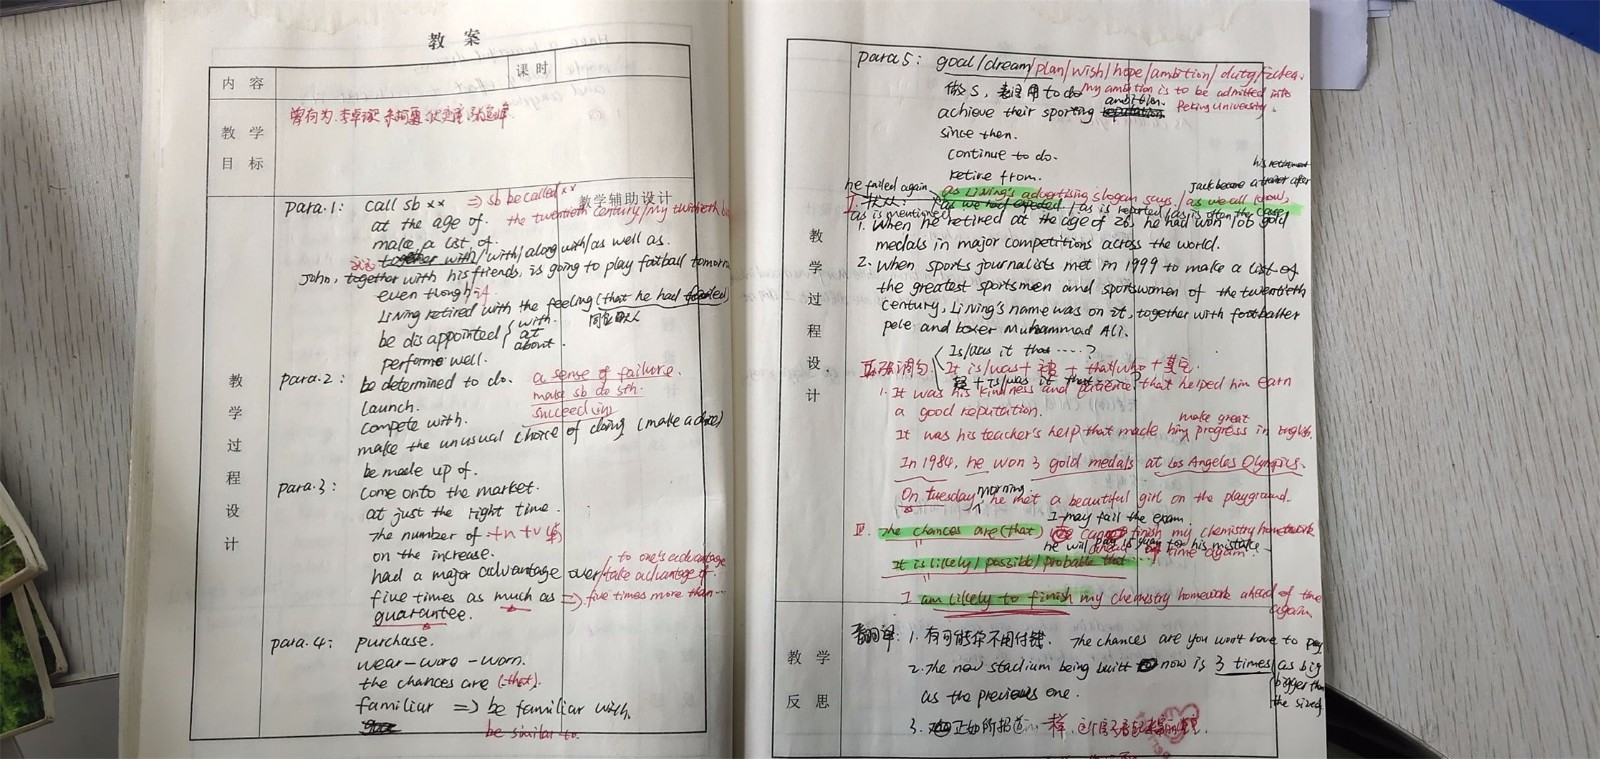 教案
课时
内容
教学目标
教学辅助设计
教学过程设计
para.1: call sb ×× ⇒ sb be called ××
at the age of. the twentieth century/my twentieth
make a list of.
together with/with/along with/as well as.
John, together with his friends, is going to play football
even though/if
Li Ning retired with the feeling (that he had failed)
be disappointed with. at about.
perform well.
para.2: be determined to do. a sense of failure.
make sb do sth.
launch. succeed in
compete with.
make the unusual choice of doing (make a choice)
be made up of.
para.3: come onto the market.
at just the right time.
the number of +n +v
on the increase. to one's advantage
had a major advantage over/take advantage of.
five times as much as ⇒ five times more than
guarantee.
para.4: purchase.
wear-wore-worn.
the chances are (that).
familiar ⇒ be familiar with.
be similar to.
para 5: goal/dream/plan/wish/hope/ambition/duty/
做S, 表语用 to do My ambition is to be admitted into Peking University.
achieve their sporting ambition.
since then.
continue to do.
retire from.
he failed again as Li Ning's advertising slogan says/as we all know,
as is mentioned as we had expected/as is reported/as is often the case,
教学过程设计
1. When he retired at the age of 26, he had won 106 gold
medals in major competitions across the world.
2. When sports journalists met in 1999 to make a list of
the greatest sportsmen and sportswomen of the twentieth
century, Li Ning's name was on it, together with footballer
Pele and boxer Muhammad Ali.
Is/was it that ....?
强调句: It is/was + + that/who + 其它.
1. It was his kindness and patience that helped him earn
a good reputation.
It was his teacher's help that made him make great progress in English.
In 1984, he won 3 gold medals at Los Angeles Olympics.
On Tuesday morning, he met a beautiful girl on the playground.
I may fail the exam.
III. The chances are (that) finish my chemistry homework
he will his mistake.
It is likely/possible/probable that
I am likely to finish my chemistry homework ahead of time again.
教学反思
翻译: 1. 有可能你不用付钱. The chances are you won't have to pay
2. The new stadium being built now is 3 times as big
bigger than
as the previous one. the size of
3. 正如所报道 一样,